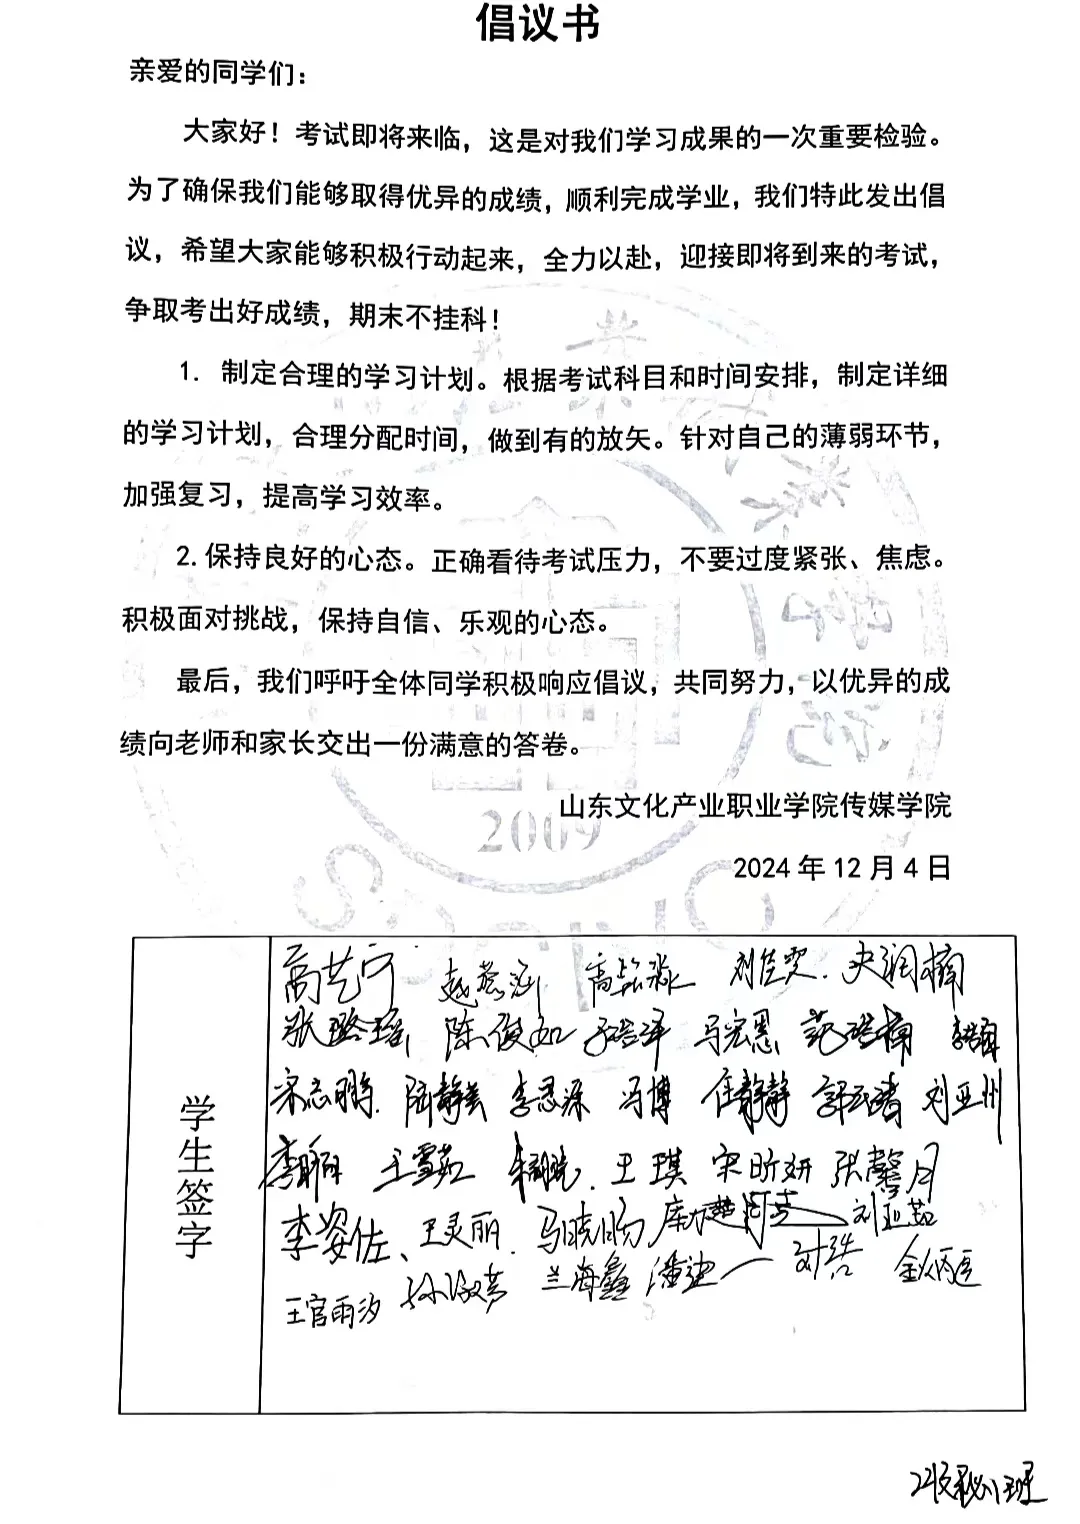 倡议书
亲爱的同学们：
大家好！考试即将来临，这是对我们学习成果的一次重要检验。
为了确保我们能够取得优异的成绩，顺利完成学业，我们特此发出倡
议，希望大家能够积极行动起来，全力以赴，迎接即将到来的考试，
争取考出好成绩，期末不挂科！
1. 制定合理的学习计划。根据考试科目和时间安排，制定详细
的学习计划，合理分配时间，做到有的放矢。针对自己的薄弱环节，
加强复习，提高学习效率。
2.保持良好的心态。正确看待考试压力，不要过度紧张、焦虑。
积极面对挑战，保持自信、乐观的心态。
最后，我们呼吁全体同学积极响应倡议，共同努力，以优异的成
绩向老师和家长交出一份满意的答卷。
山东文化产业职业学院传媒学院
2009
2024年12月4日
学生签字
高艺宁 刘佳雯 史润楠
张璐瑶 陈俊如 马宏恩
宋志鹏 陆静芸 李思源 冯博 任静静 刘亚州
王雪茹 王琪 宋昕妍 张馨月
李姿佐、王灵丽 马晓旸 刘亚茹
王官雨汐 孙淑芳 兰海鑫 刘浩